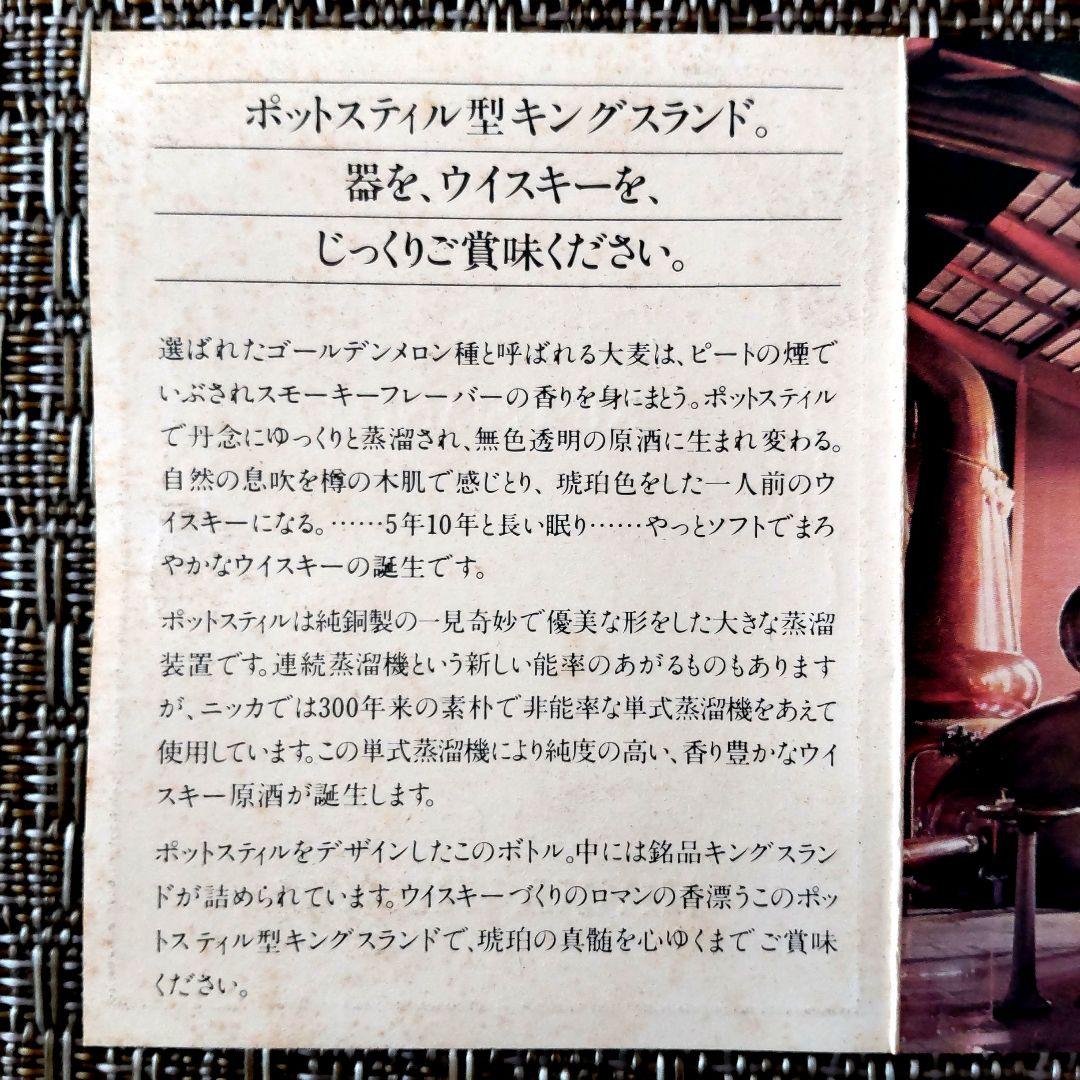 ポットスティル型キングスランド。
器を、ウイスキーを、
じっくりご賞味ください。
選ばれたゴールデンメロン種と呼ばれる大麦は、ピートの煙で
いぶされスモーキーフレーバーの香りを身にまとう。ポットスティル
で丹念にゆっくりと蒸溜され、無色透明の原酒に生まれ変わる。
自然の息吹を樽の木肌で感じとり、琥珀色をした一人前のウ
イスキーになる。……5年10年と長い眠り……やっとソフトでまろ
やかなウイスキーの誕生です。
ポットスティルは純銅製の一見奇妙で優美な形をした大きな蒸溜
装置です。連続蒸溜機という新しい能率のあがるものもあります
が、ニッカでは300年来の素朴で非能率な単式蒸溜機をあえて
使用しています。この単式蒸溜機により純度の高い、香り豊かなウイ
スキー原酒が誕生します。
ポットスティルをデザインしたこのボトル。中には銘品キングスラン
ドが詰められています。ウイスキーづくりのロマンの香漂うこのポッ
トスティル型キングスランドで、琥珀の真髄を心ゆくまでご賞味
ください。